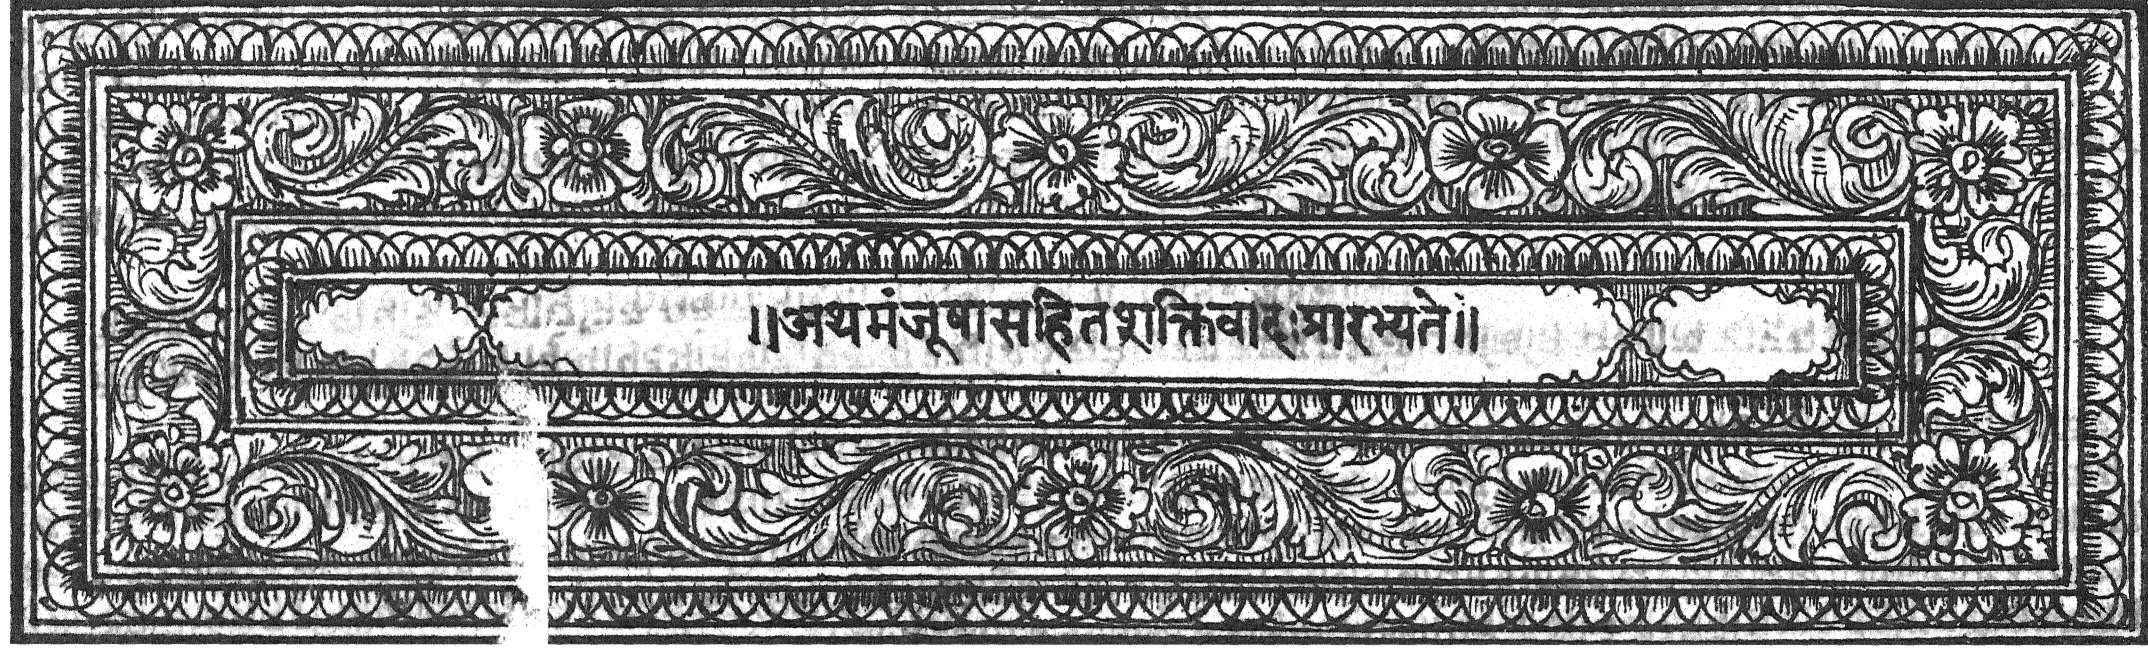 ॥अथमंजूषासहितशक्तिवादःप्रारभ्यते॥